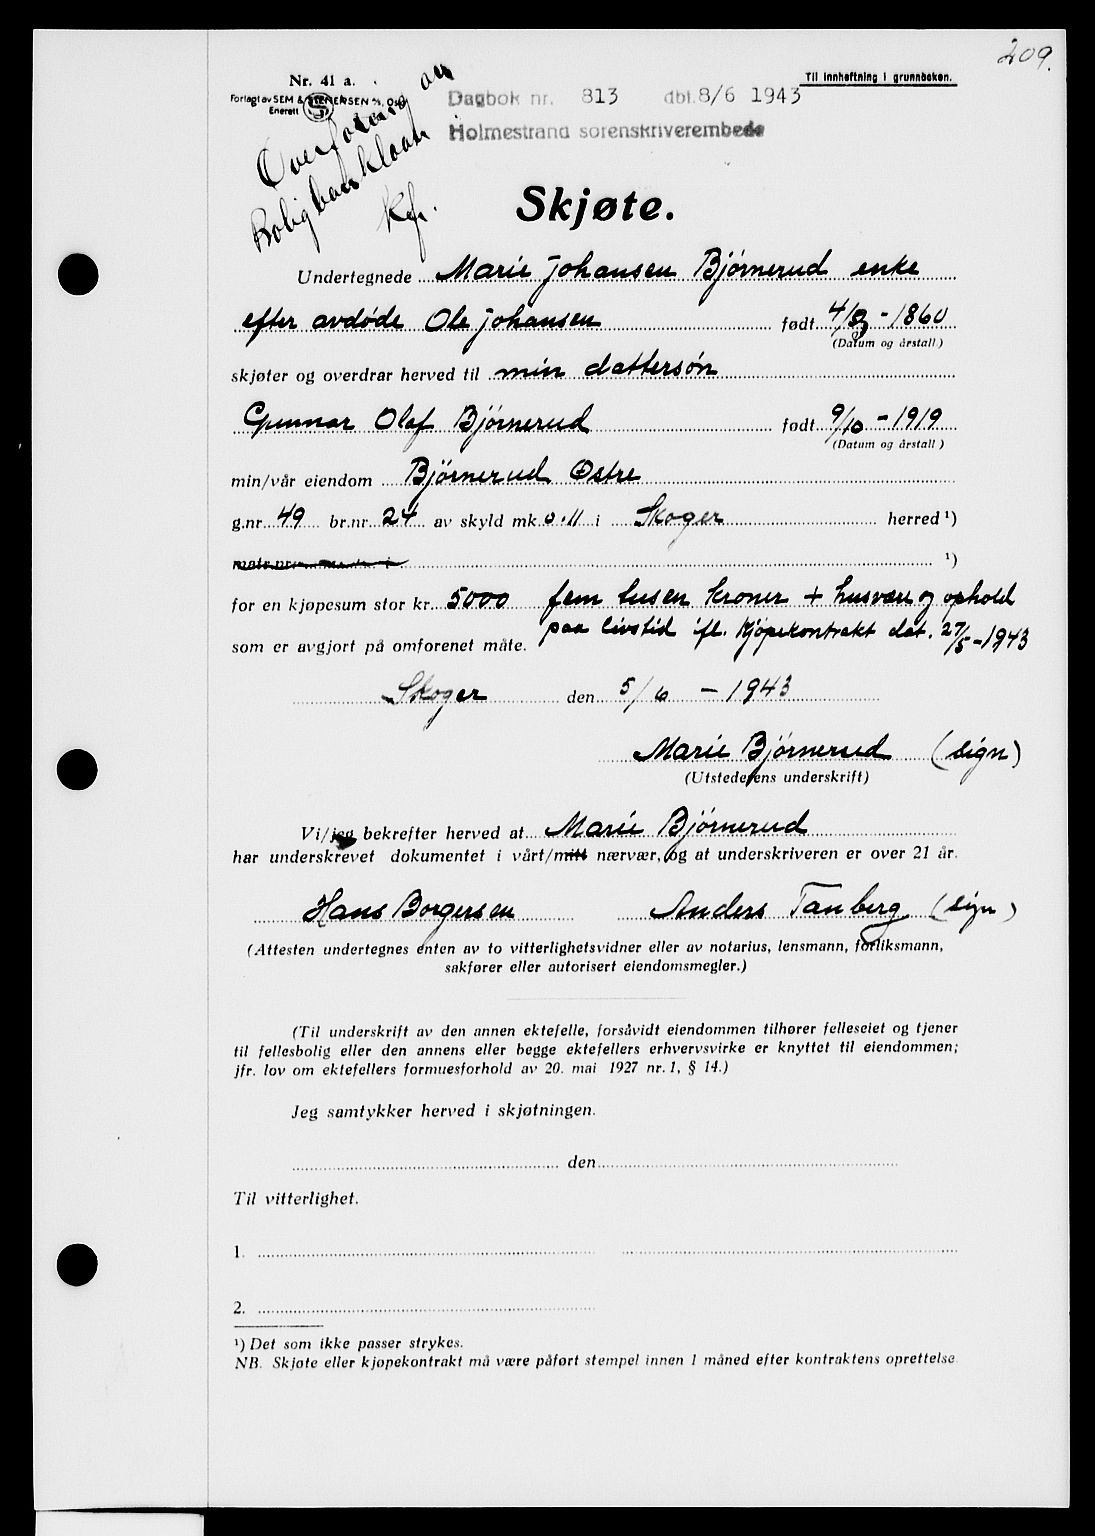 209.
Til innheftning i grunnboken.
Nr. 41 a.
Forlagt av SEM & STENERSEN A/S, Oslo
Enerett
Dagbok nr. 813 dbt. 8/6 1943
Holmestrand sorenskriverembede
Overføring av
Boligbanklaan
Kfr.
Skjøte.
Undertegnede Marie Johansen Bjørnerud enke
efter avdøde Ole Johansen født 4/8 - 1860
(Datum og årstall)
skjøter og overdrar herved til min dattersøn
Gunnar Olaf Bjørnerud født 9/10 - 1919
(Datum og årstall)
min/vår eiendom Bjørnerud Østre
g.nr. 49 br.nr. 24 av skyld mk. 0.11 i Skoger herred ¹)
matr.nr. ¹)
for en kjøpesum stor kr. 5000 fem tusen kroner + husvære og ophold
paa livstid ifl. kjøpekontrakt dat. 27/5-1943
som er avgjort på omforenet måte.
Skoger den 5/6 - 1943
Marie Bjørnerud (sign)
(Utstederens underskrift)
Vi/jeg bekrefter herved at Marie Bjørnerud
har underskrevet dokumentet i vårt/mitt nærvær, og at underskriveren er over 21 år.
Hans Borgersen Anders Tanberg (sign)
(Attesten undertegnes enten av to vitterlighetsvidner eller av notarius, lensmann, forliksmann,
sakfører eller autorisert eiendomsmegler.)
(Til underskrift av den annen ektefelle, forsåvidt eiendommen tilhører felleseiet og tjener
til fellesbolig eller den annens eller begge ektefellers erhvervsvirke er knyttet til eiendommen;
jfr. lov om ektefellers formuesforhold av 20. mai 1927 nr. 1, § 14.)
Jeg samtykker herved i skjøtningen.
den
Til vitterlighet.
1.
2.
¹) Det som ikke passer strykes.
NB. Skjøte eller kjøpekontrakt må være påført stempel innen 1 måned efter kontraktens oprettelse